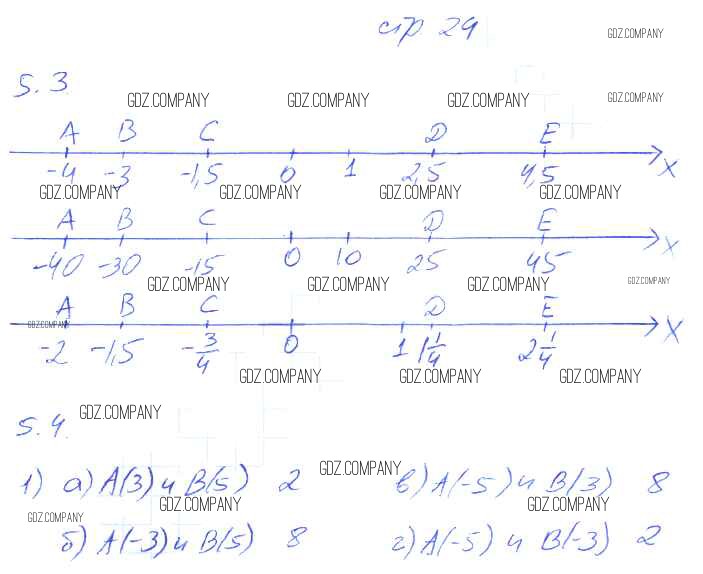 стр 29
GDZ.COMPANY
5.3
GDZ.COMPANY GDZ.COMPANY GDZ.COMPANY GDZ.COMPANY
A B C D E
-4 -3 -1,5 0 1 2,5 4,5 x
GDZ.COMPANY GDZ.COMPANY GDZ.COMPANY GDZ.COMPANY
A B C D E
-40 -30 -15 0 10 25 45 x
GDZ.COMPANY GDZ.COMPANY GDZ.COMPANY GDZ.COMPANY
A B C D E
GDZ.COMPANY
-2 -1,5 -3/4 0 1 1 1/4 2 1/4 x
GDZ.COMPANY GDZ.COMPANY GDZ.COMPANY
5.4. GDZ.COMPANY
GDZ.COMPANY
1) а) A(3) и B(5) 2 в) A(-5) и B(3) 8
GDZ.COMPANY GDZ.COMPANY
GDZ.COMPANY
б) A(-3) и B(5) 8 г) A(-5) и B(-3) 2